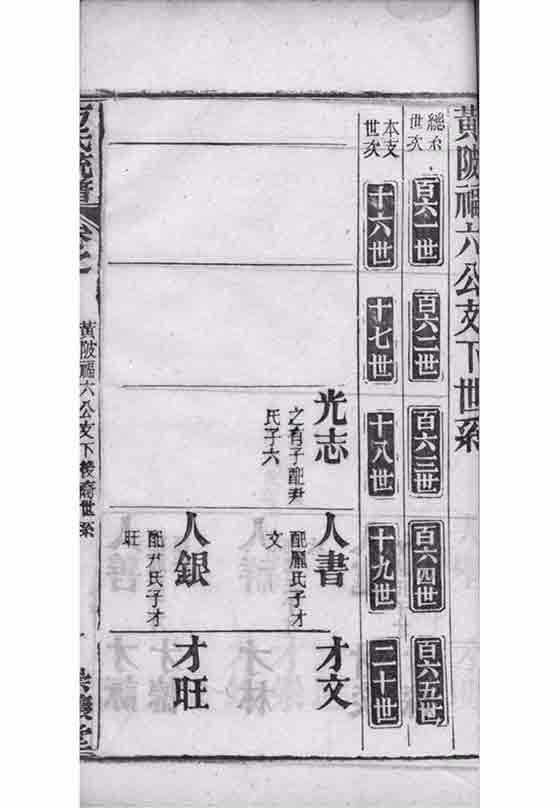 黃陂福六公支下世系
總系
世次
百六一世
百六二世
百六三世
百六四世
百六五世
本支
世次
十六世
十七世
十八世
十九世
二十世
光志
之有子配尹
氏子六
人書
配龎氏子才
文
才文
人銀
配尹氏子才
旺
才旺
氏統譜
黃陂福六公支下後裔世系